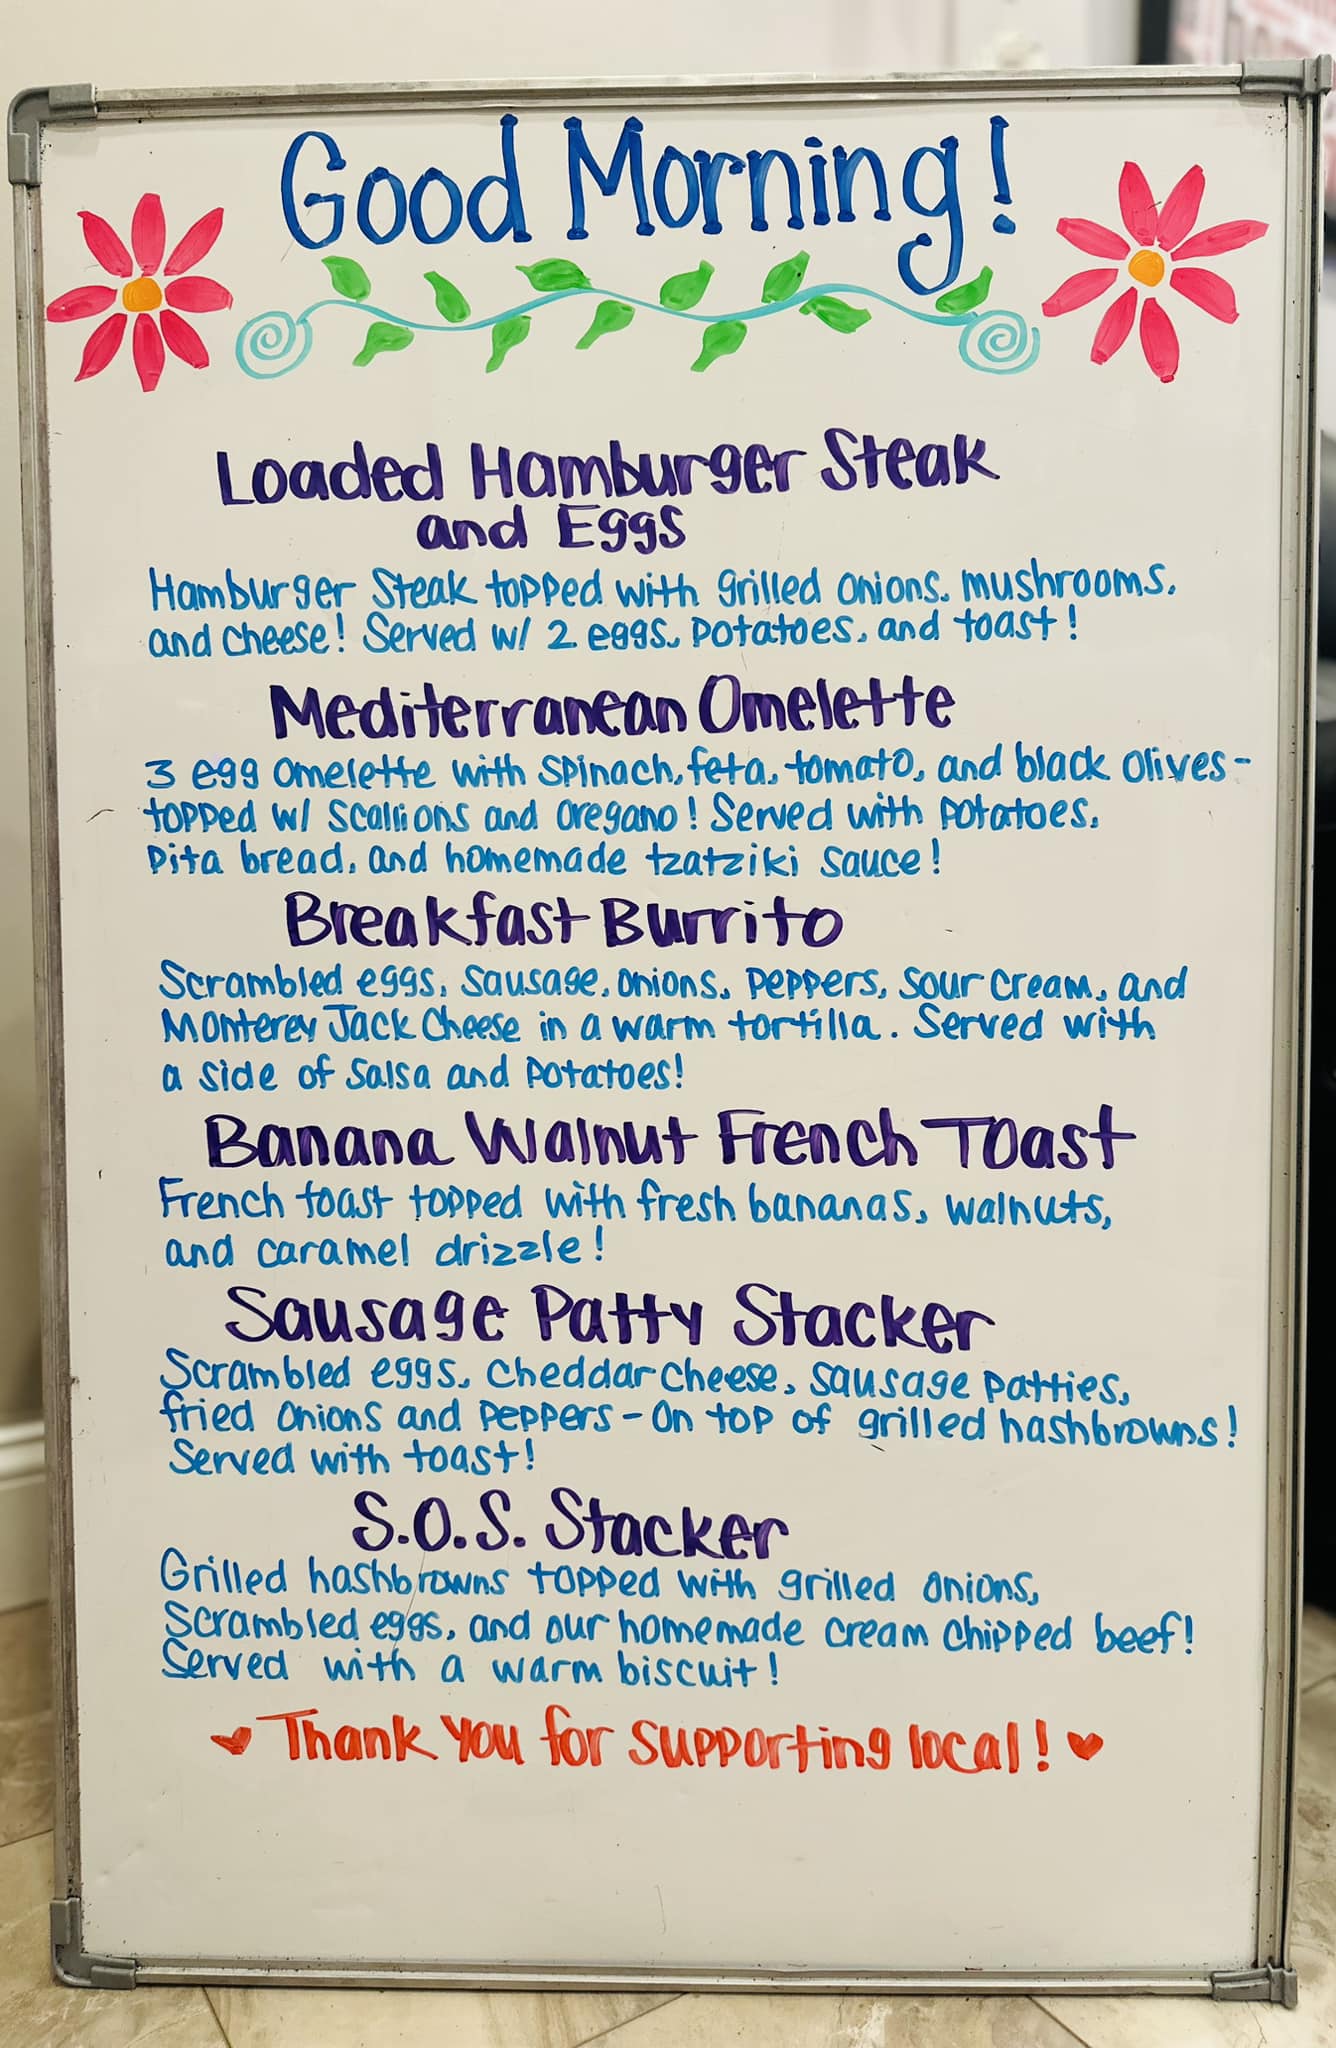 Good Morning!
Loaded Hamburger Steak
and Eggs
Hamburger Steak topped with grilled onions, mushrooms,
and cheese! Served w/ 2 eggs, potatoes, and toast!
Mediterranean Omelette
3 egg omelette with spinach, feta, tomato, and black olives-
topped w/ scallions and oregano! Served with potatoes,
pita bread, and homemade tzatziki sauce!
Breakfast Burrito
Scrambled eggs, sausage, onions, peppers, sour cream, and
Monterey Jack Cheese in a warm tortilla. Served with
a side of salsa and potatoes!
Banana Walnut French Toast
French toast topped with fresh bananas, walnuts,
and caramel drizzle!
Sausage Patty Stacker
Scrambled eggs, cheddar cheese, sausage patties,
fried onions and peppers - on top of grilled hashbrowns!
Served with toast!
S.O.S. Stacker
Grilled hashbrowns topped with grilled onions,
scrambled eggs, and our homemade cream chipped beef!
Served with a warm biscuit!
Thank you for supporting local!